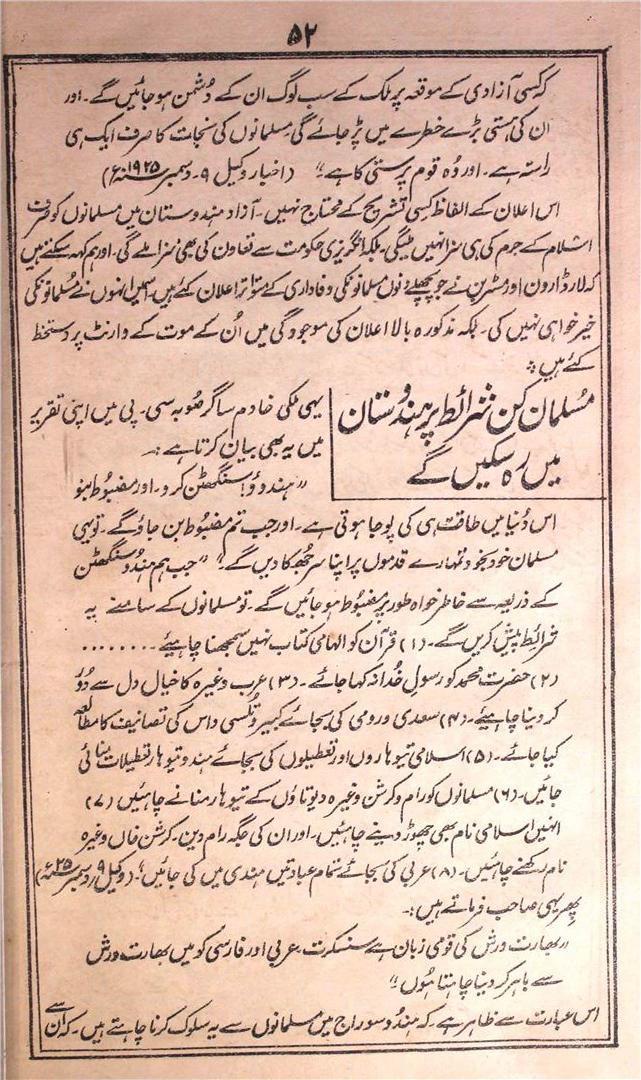 ۵۲
کہ کسی آزادی کے موقعہ پر ملک کے سب لوگ ان کے دشمن ہو جائیں گے۔ اور
ان کی ہستی بڑے خطرے میں پڑ جائے گی۔ مسلمانوں کی نجات کا صرف ایک ہی
راستہ ہے۔ اور وُہ قوم پرستی کا ہے۔" (اخبار وکیل ۹۔ دسمبر ۱۹۲۵ء)
اس اعلان کے الفاظ کسی تشریح کے محتاج نہیں۔ آزاد ہندوستان میں مسلمانوں کو صرف
اسلام کے جرم کی ہی سزا نہیں ملیگی۔ بلکہ انگریزی حکومت سے تعاون کی بھی سزا ملے گی۔ اور ہم کہہ سکتے ہیں
کہ لارڈ ارون اور مسٹر بن نے جو پچھلے دنوں مسلمانونکی وفاداری کے متواتر اعلان کئے ہیں۔ اسمیں انہوں نے مسلمانونکی
خیر خواہی نہیں کی۔ بلکہ مذکورہ بالا اعلان کی موجودگی میں اُن کے موت کے وارنٹ پر دستخط
کئے ہیں ؞
مُسلمان کن شرائط پر ہندوستان
میں رہ سکیں گے
یہی ملکی خادم ساگر صوبہ سی۔ پی میں اپنی تقریر
میں یہ بھی بیان کرتا ہے:۔
"ہندوؤ! سنگھٹن کرو۔ اور مضبوط بنو
اس دُنیا میں طاقت ہی کی پوجا ہوتی ہے۔ اور جب تم مضبُوط بن جاؤ گے۔ تو یہی
مسلمان خود بخود تمہارے قدموں پر اپنا سر جُھکا دیں گے۔" "جب ہم ہندو سنگھٹن
کے ذریعہ سے خاطر خواہ طور پر مضبُوط ہو جائیں گے۔ تو مسلمانوں کے سامنے یہ
شرائط پیش کریں گے۔ (۱) قرآن کو الہامی کتاب نہیں سمجھنا چاہیئے ........
(۲) حضرت محمد کو رسولِ خُدا نہ کہا جائے۔ (۳) عرب وغیرہ کا خیال دل سے دُور
کر دینا چاہیئے۔ (۴) سعدی و رومی کی بجائے کبیر و تُلسی داس کی تصانیف کا مطالعہ
کیا جائے۔ (۵) اسلامی تیوہاروں اور تعطیلوں کی بجائے ہندو تیوہار و تعطیلات منائی
جائیں۔ (۶) مسلمانوں کو رام و کرشن وغیرہ دیوتاؤں کے تیوہار منانے چاہئیں (۷)
انہیں اسلامی نام بھی چھوڑ دینے چاہئیں۔ اور ان کی جگہ رام دین۔ کرشن خاں وغیرہ
نام رکھنے چاہئیں۔ (۸) عربی کی بجائے تمام عبادتیں ہندی میں کی جائیں"۔ (وکیل ۹ دسمبر ۲۵ء)
پھر یہی صاحب فرماتے ہیں:۔
"بھارت ورش کی قومی زبان ہے سنسکرت۔ عربی اور فارسی کو میں بھارت ورش
سے باہر کر دینا چاہتا ہُوں۔"
اس عبارت سے ظاہر ہے۔ کہ ہندو سوراج میں مسلمانوں سے یہ سلوک کرنا چاہتے ہیں۔ کہ اُن سے